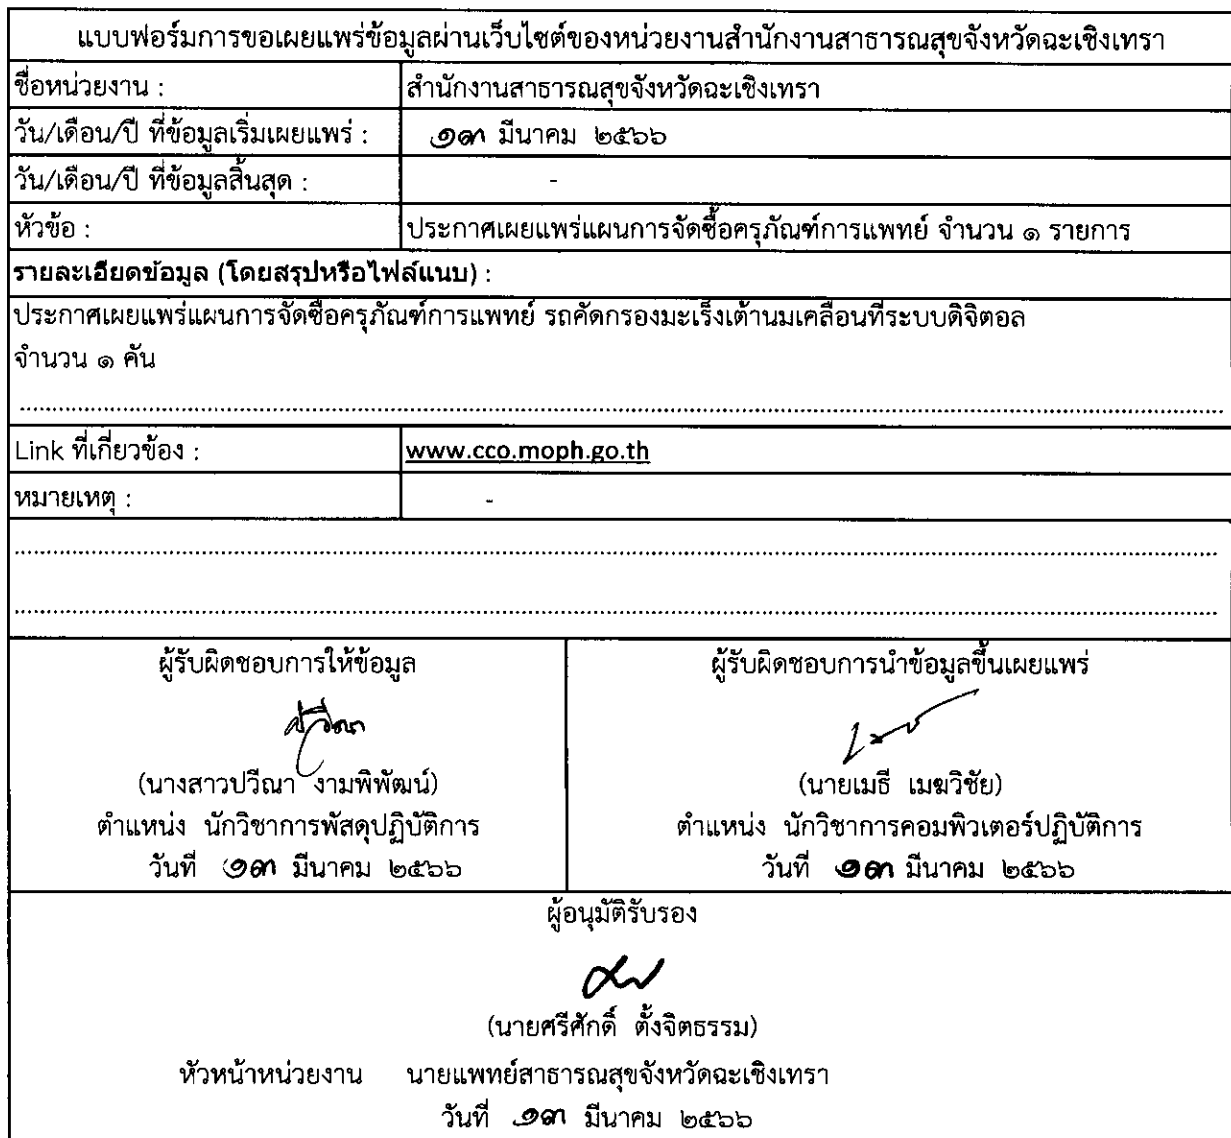 แบบฟอร์มการขอเผยแพร่ข้อมูลผ่านเว็บไซต์ของหน่วยงานสำนักงานสาธารณสุขจังหวัดฉะเชิงเทรา
ชื่อหน่วยงาน : สำนักงานสาธารณสุขจังหวัดฉะเชิงเทรา
วัน/เดือน/ปี ที่ข้อมูลเริ่มเผยแพร่ : ๑๓ มีนาคม ๒๕๖๖
วัน/เดือน/ปี ที่ข้อมูลสิ้นสุด : -
หัวข้อ : ประกาศเผยแพร่แผนการจัดซื้อครุภัณฑ์การแพทย์ จำนวน ๑ รายการ
รายละเอียดข้อมูล (โดยสรุปหรือไฟล์แนบ) :
ประกาศเผยแพร่แผนการจัดซื้อครุภัณฑ์การแพทย์ รถคัดกรองมะเร็งเต้านมเคลื่อนที่ระบบดิจิตอล
จำนวน ๑ คัน
Link ที่เกี่ยวข้อง : www.cco.moph.go.th
หมายเหตุ : -
ผู้รับผิดชอบการให้ข้อมูล ผู้รับผิดชอบการนำข้อมูลขึ้นเผยแพร่
ปวีณา
(นางสาวปวีณา งามพิพัฒน์) (นายเมธี เมฆวิชัย)
ตำแหน่ง นักวิชาการพัสดุปฏิบัติการ ตำแหน่ง นักวิชาการคอมพิวเตอร์ปฏิบัติการ
วันที่ ๑๓ มีนาคม ๒๕๖๖ วันที่ ๑๓ มีนาคม ๒๕๖๖
ผู้อนุมัติรับรอง
(นายศรีศักดิ์ ตั้งจิตธรรม)
หัวหน้าหน่วยงาน นายแพทย์สาธารณสุขจังหวัดฉะเชิงเทรา
วันที่ ๑๓ มีนาคม ๒๕๖๖